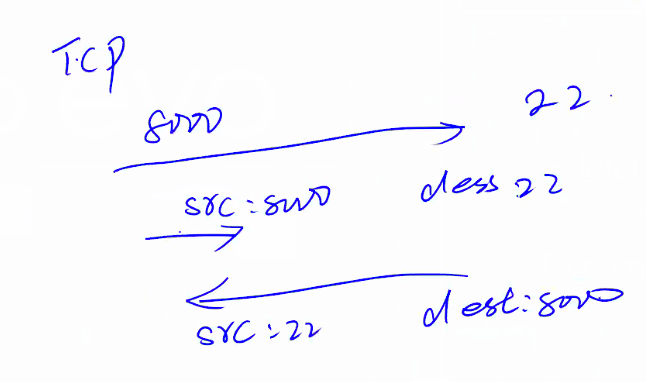 TCP
8000 22
src:8000 dess 22
src:22 dest:8000